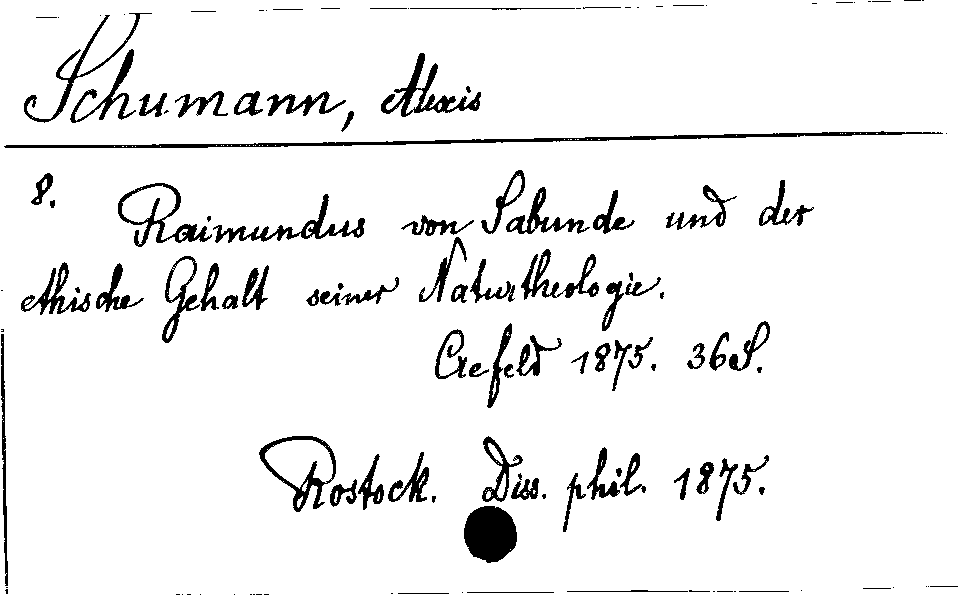 Schumann, Alexis
8.
Raimundus von Sabunde und der
ethische Gehalt seiner Naturtheologie.
Crefeld 1875. 36 S.
Rostock. Diss. phil. 1875.